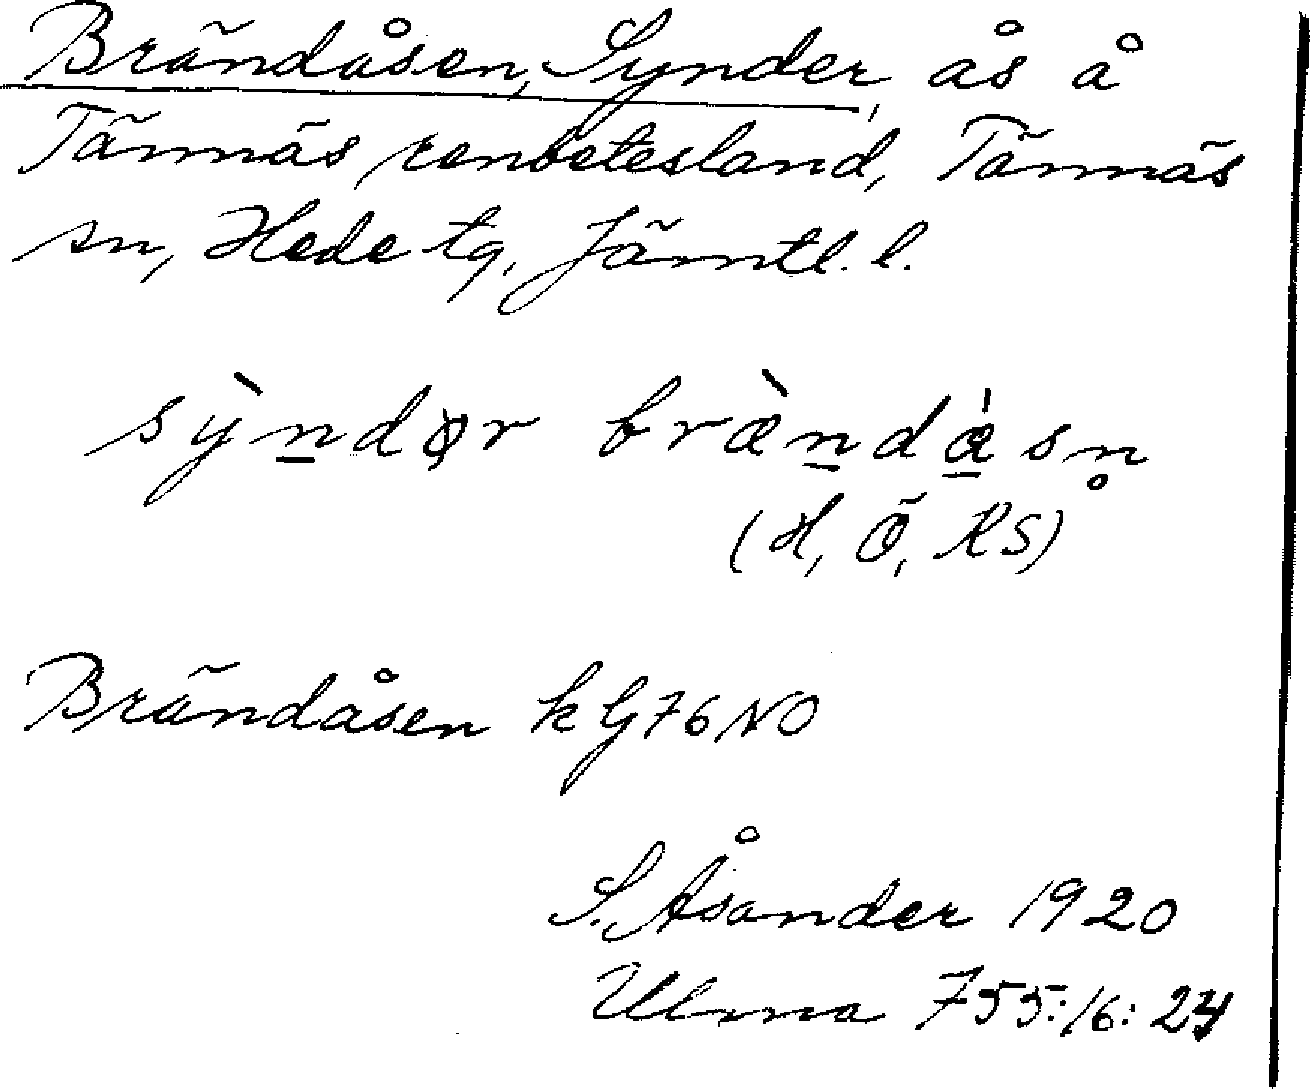 Brändåsen, Synder, ås å
Tännäs renbetesland, Tännäs
sn, Hede tg, Jämtl. l.
sỳn̲dər bræ̀n̲dǻ̲sn̥
(H, Ö, KS)
Brändåsen k G76NO
S. Åsander 1920
Ulma 755:16:24